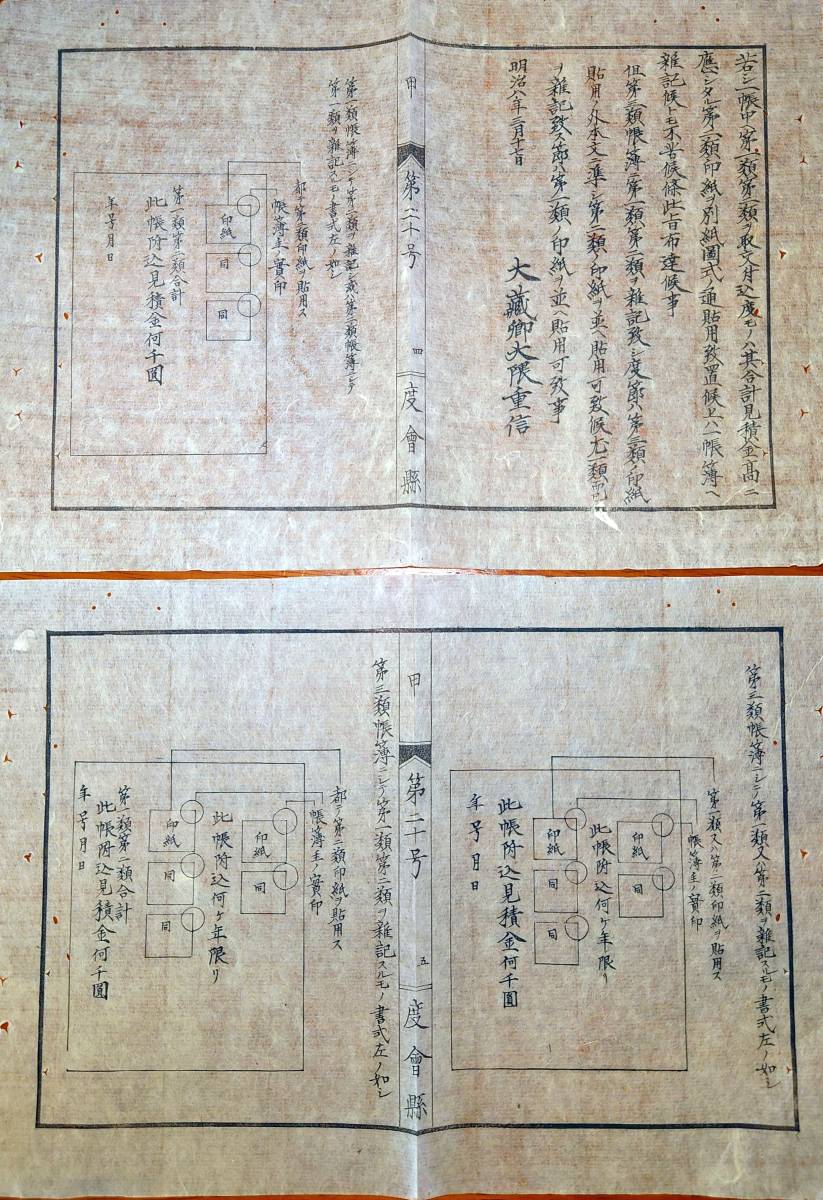 若シ一帳中ヘ第一類第二類ヲ取交付込度モノハ其合計見積金高ニ
應シタル第二類印紙ヲ別紙圖式ノ通貼用致置候上ハ一帳簿ヘ
雜記候トモ不苦候條此旨布達候事
但第三類帳簿ニ第一類第二類ヲ雜記致シ度節ハ第三類ノ印紙
貼用ノ外本文ニ準シ第二類ノ印紙ヲ並ヘ貼用可致候尤一類而已
ヲ雜記致ス節ハ第一類ノ印紙ヲ並ヘ貼用可致事
明治八年三月十日
大藏卿大隈重信
甲
第二十号
四
度會縣
第一類帳簿ニシテ第二類ヲ雜記シ或ハ第二類帳簿ニシテ
第一類ヲ雜記スルモノ書式左ノ如シ
都テ第二類印紙ヲ貼用ス
帳簿主ノ實印
印紙
同
同
第一類第二類合計
此帳附込見積金何千圓
年号月日
第三類帳簿ニシテ第一類又ハ第二類ヲ雜記スルモノ書式左ノ如シ
第一類又ハ第二類印紙ヲ貼用ス
帳簿主ノ實印
印紙
同
此帳附込何ケ年限リ
印紙
同
同
此帳附込見積金何千圓
年号月日
甲
第二十号
五
度會縣
第三類帳簿ニシテ第一類第二類ヲ雜記スルモノ書式左ノ如シ
都テ第二類印紙ヲ貼用ス
帳簿主ノ實印
印紙
同
此帳附込何ケ年限リ
印紙
同
同
第一類第二類合計
此帳附込見積金何千圓
年号月日